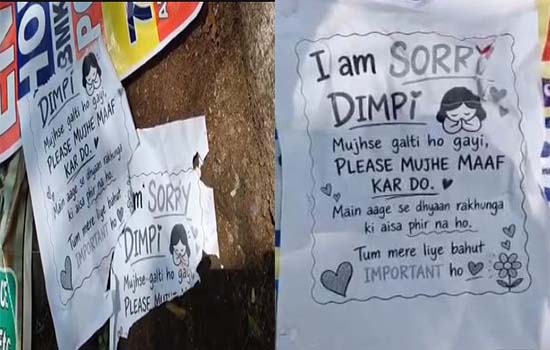 DIMPi
Mujhse galti ho gayi,
PLEASE MUJHE MAAF
KAR DO.
Main aage se dhyaan rakhunga
ki aisa phir na ho.
Tum mere liye bahut
IMPORTANT ho
am SORRY
DIMPi
Mujhse galti ho gayi,
PLEASE MUJHE
I am SORRY
DIMPi
Mujhse galti ho gayi,
PLEASE MUJHE MAAF
KAR DO.
Main aage se dhyaan rakhunga
ki aisa phir na ho.
Tum mere liye bahut
IMPORTANT ho